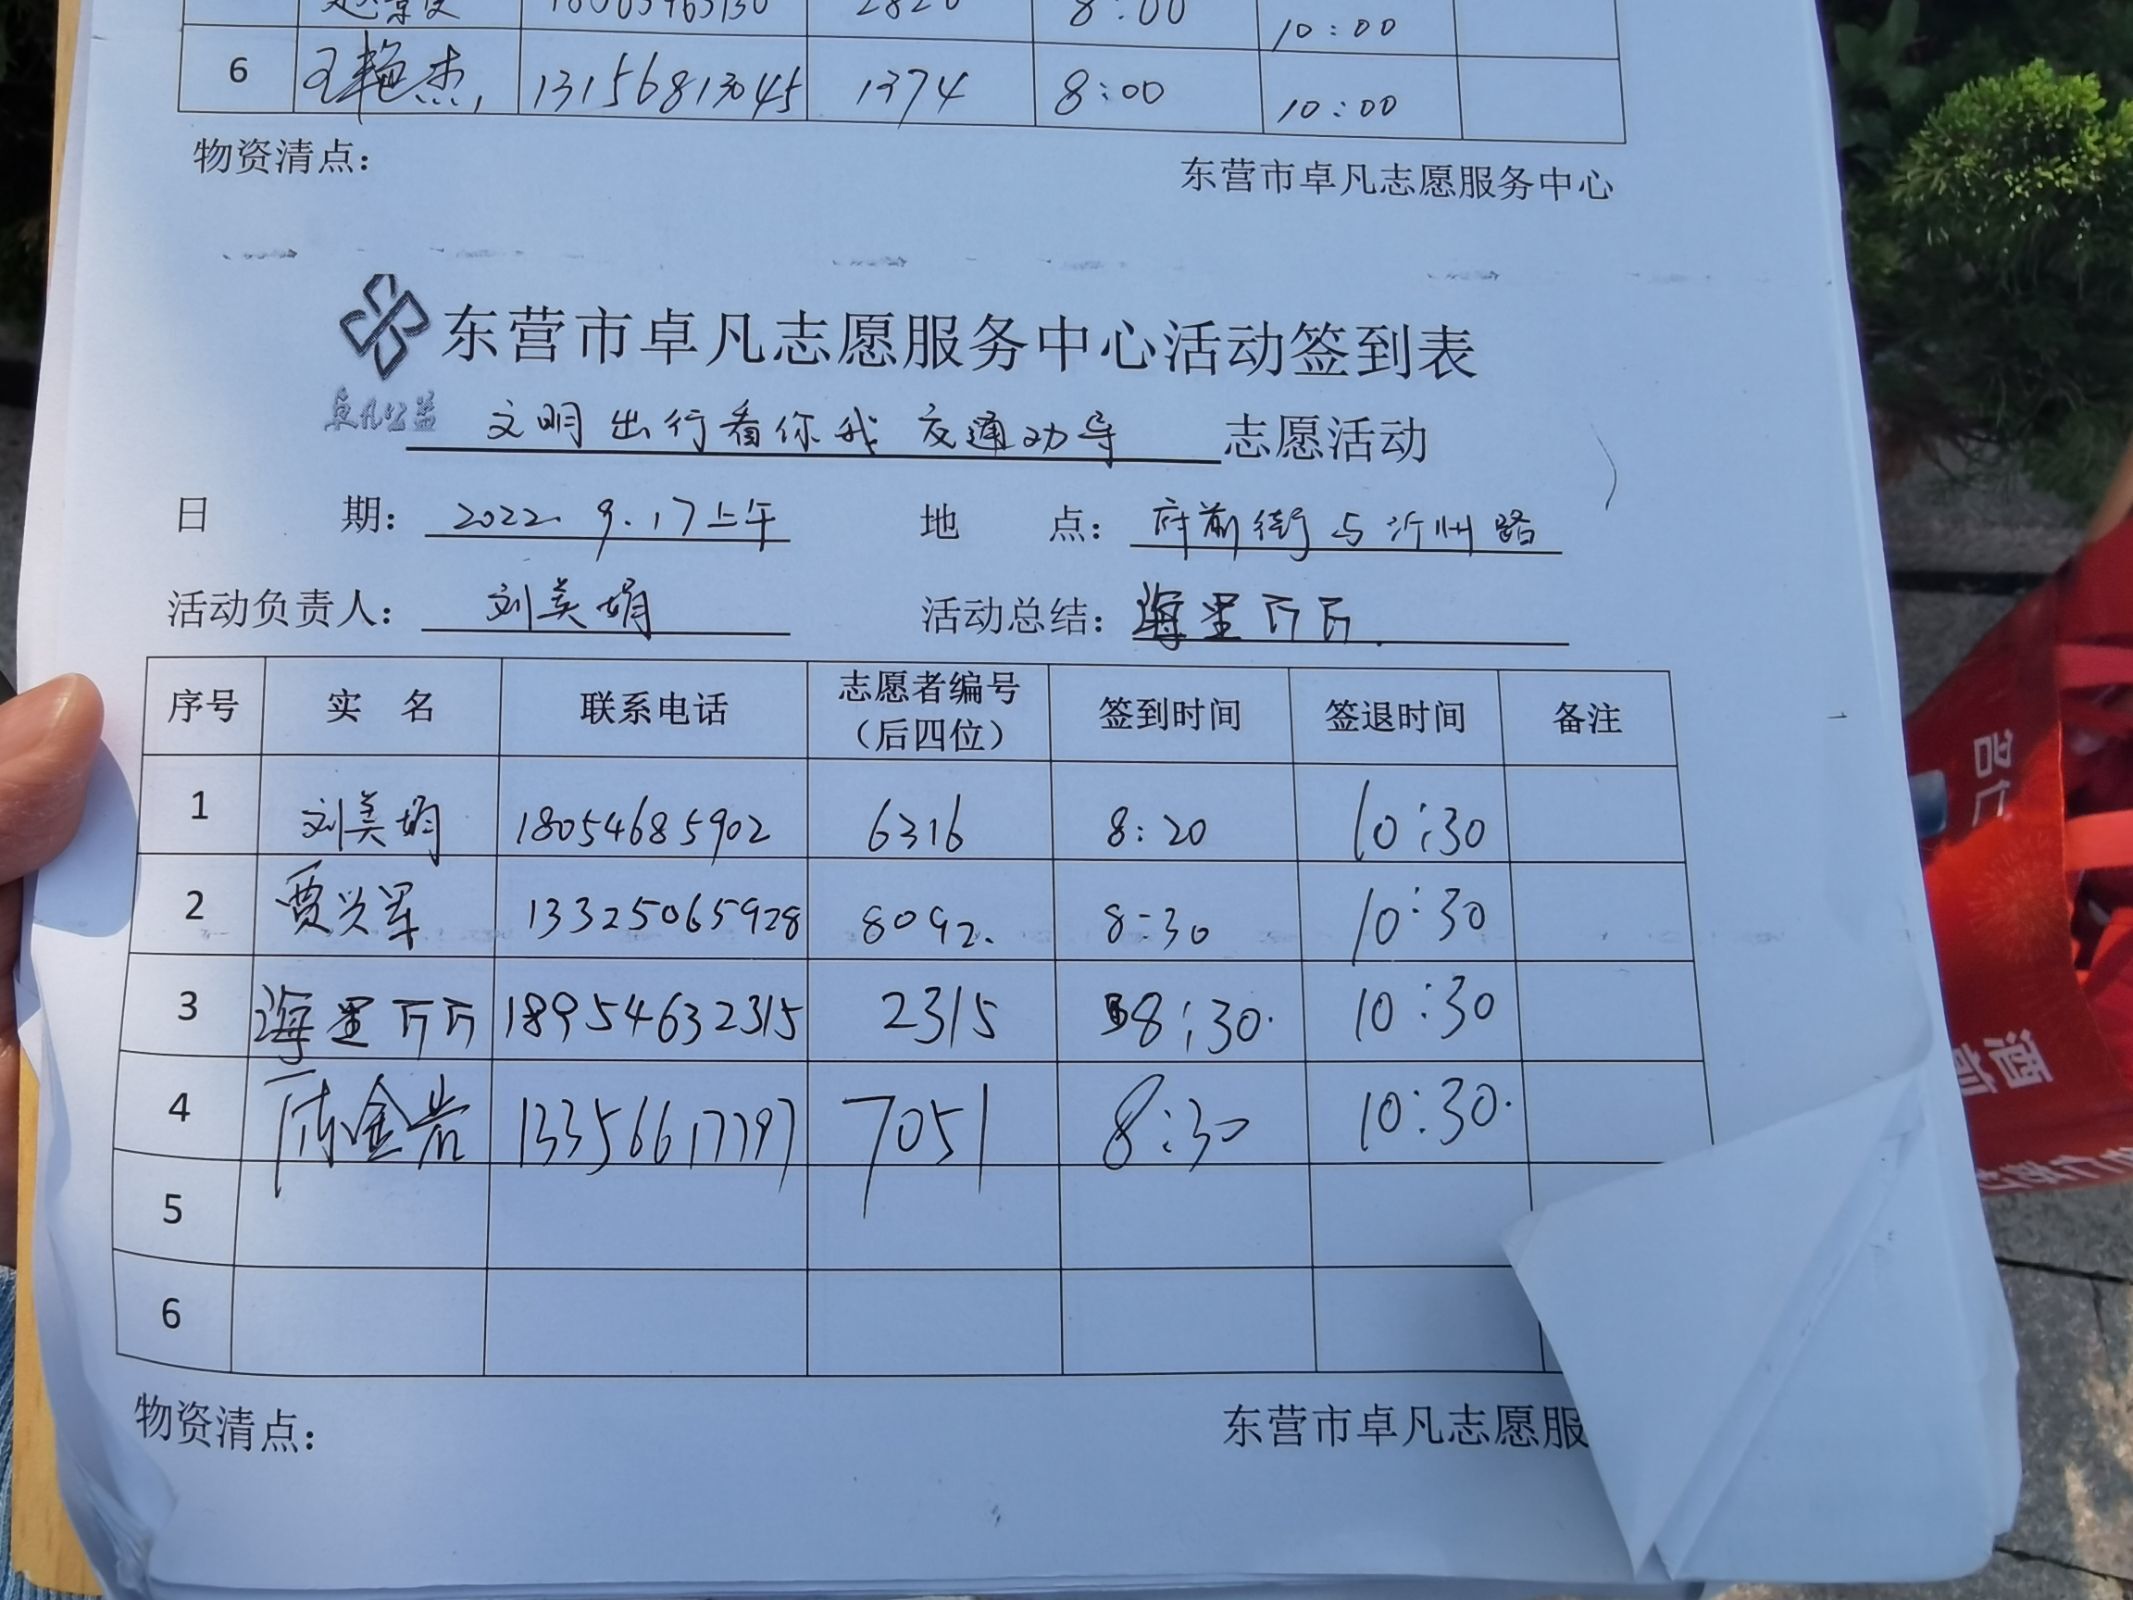 2820 8:00 10:00
6 王艳杰 13156813045 1374 8:00 10:00
物资清点： 东营市卓凡志愿服务中心
东营市卓凡志愿服务中心活动签到表
卓凡公益 文明出行看你我 交通劝导 志愿活动
日 期： 2022.9.17上午 地 点： 府前街与沂州路
活动负责人： 刘美娟 活动总结： 海里万万.
序号 实 名 联系电话 志愿者编号（后四位） 签到时间 签退时间 备注
1 刘美娟 18054685902 6316 8:20 10:30
2 贾兴军 13325065928 8092. 8:30 10:30
3 海里万万 18954632315 2315 8:30. 10:30
4 陈金岩 13356617797 7051 8:30 10:30.
5
6
物资清点： 东营市卓凡志愿服
酒前